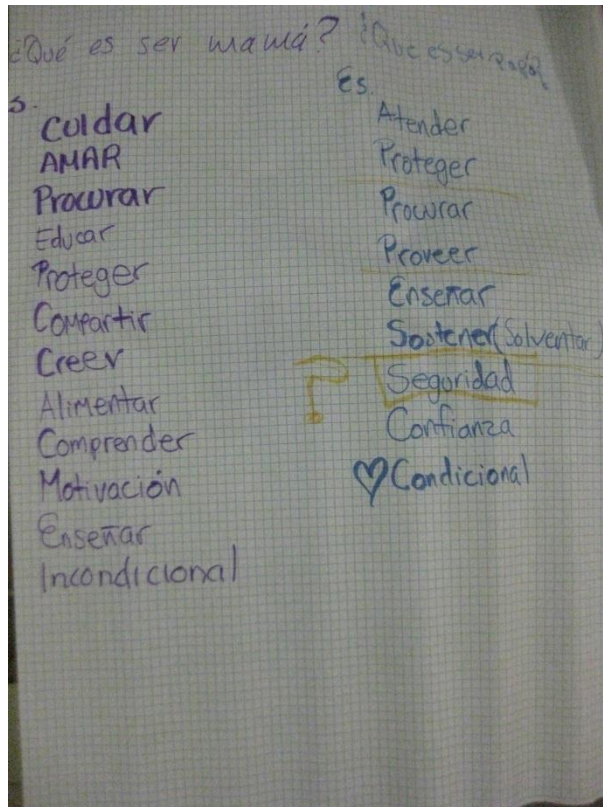 ¿Qué es ser mamá?
s.
Cuidar
AMAR
Procurar
Educar
Proteger
Compartir
Creer
Alimentar
Comprender
Motivación
Enseñar
Incondicional
¿Que es ser papá?
Es.
Atender
Proteger
Procurar
Proveer
Enseñar
Sostener (Solventar)
Seguridad
?
Confianza
Condicional